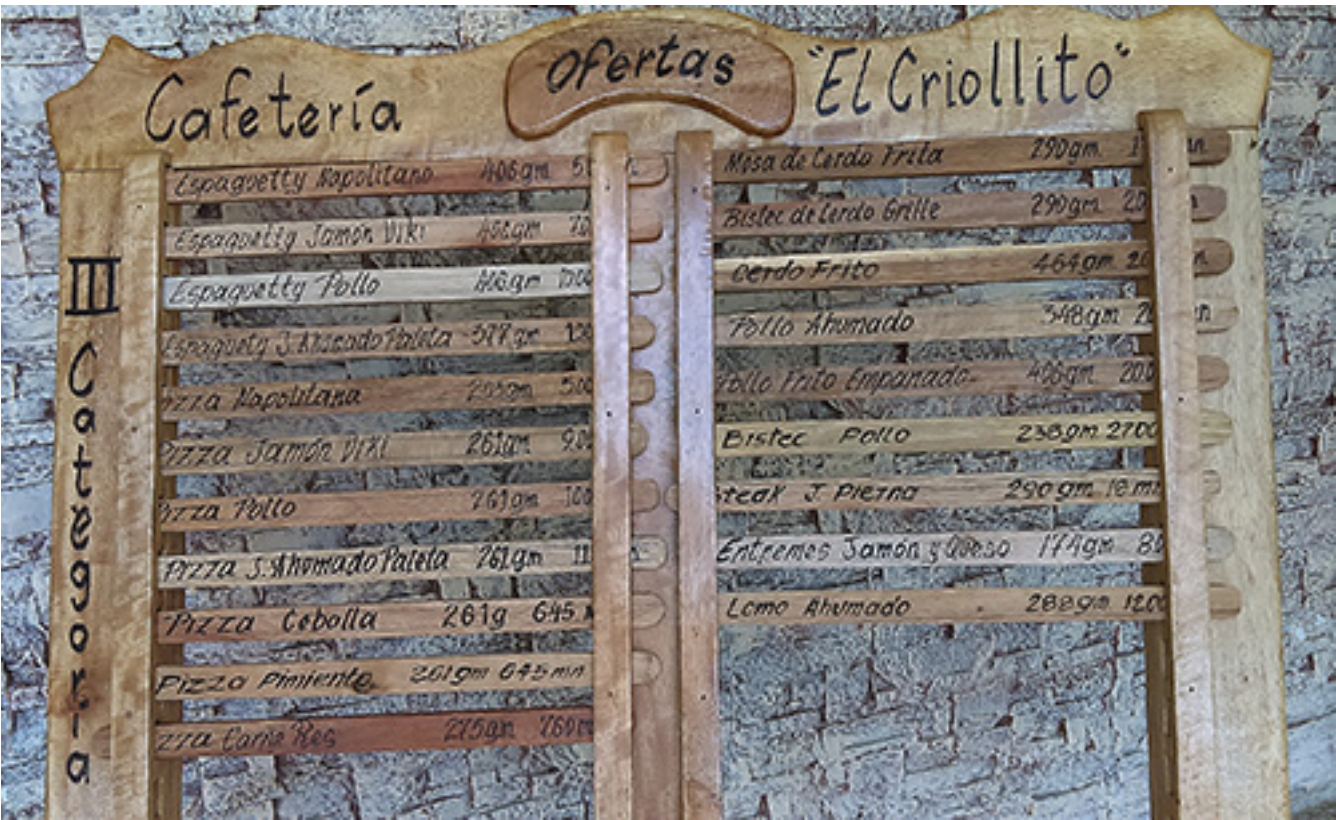 Cafetería Ofertas "El Criollito"
III Categoría
Espaguetty Napolitano 406gm
Espaguetty Jamón Viki
Espaguetty Pollo 406gm
Espaguety J. Ahumado Paleta 377gm
Napolitana
Jamón Viki 261gm
Pollo 261gm
Pizza J. Ahomado Paleta 261gm
Pizza Cebolla 261g 645
Pizza Pimiento 261gm 645mn
Carne Res 275gm 760
Masa de Cerdo Frita 290gm
Bistec de Cerdo Grille 290gm
Cerdo Frito 464gm
Pollo Ahumado 348gm
Pollo Frito Empanado 406gm
Bistec Pollo 238gm 2700
J. Pierna 290gm
Entremes Jamón y Queso 174gm
Lomo Ahumado 288gm